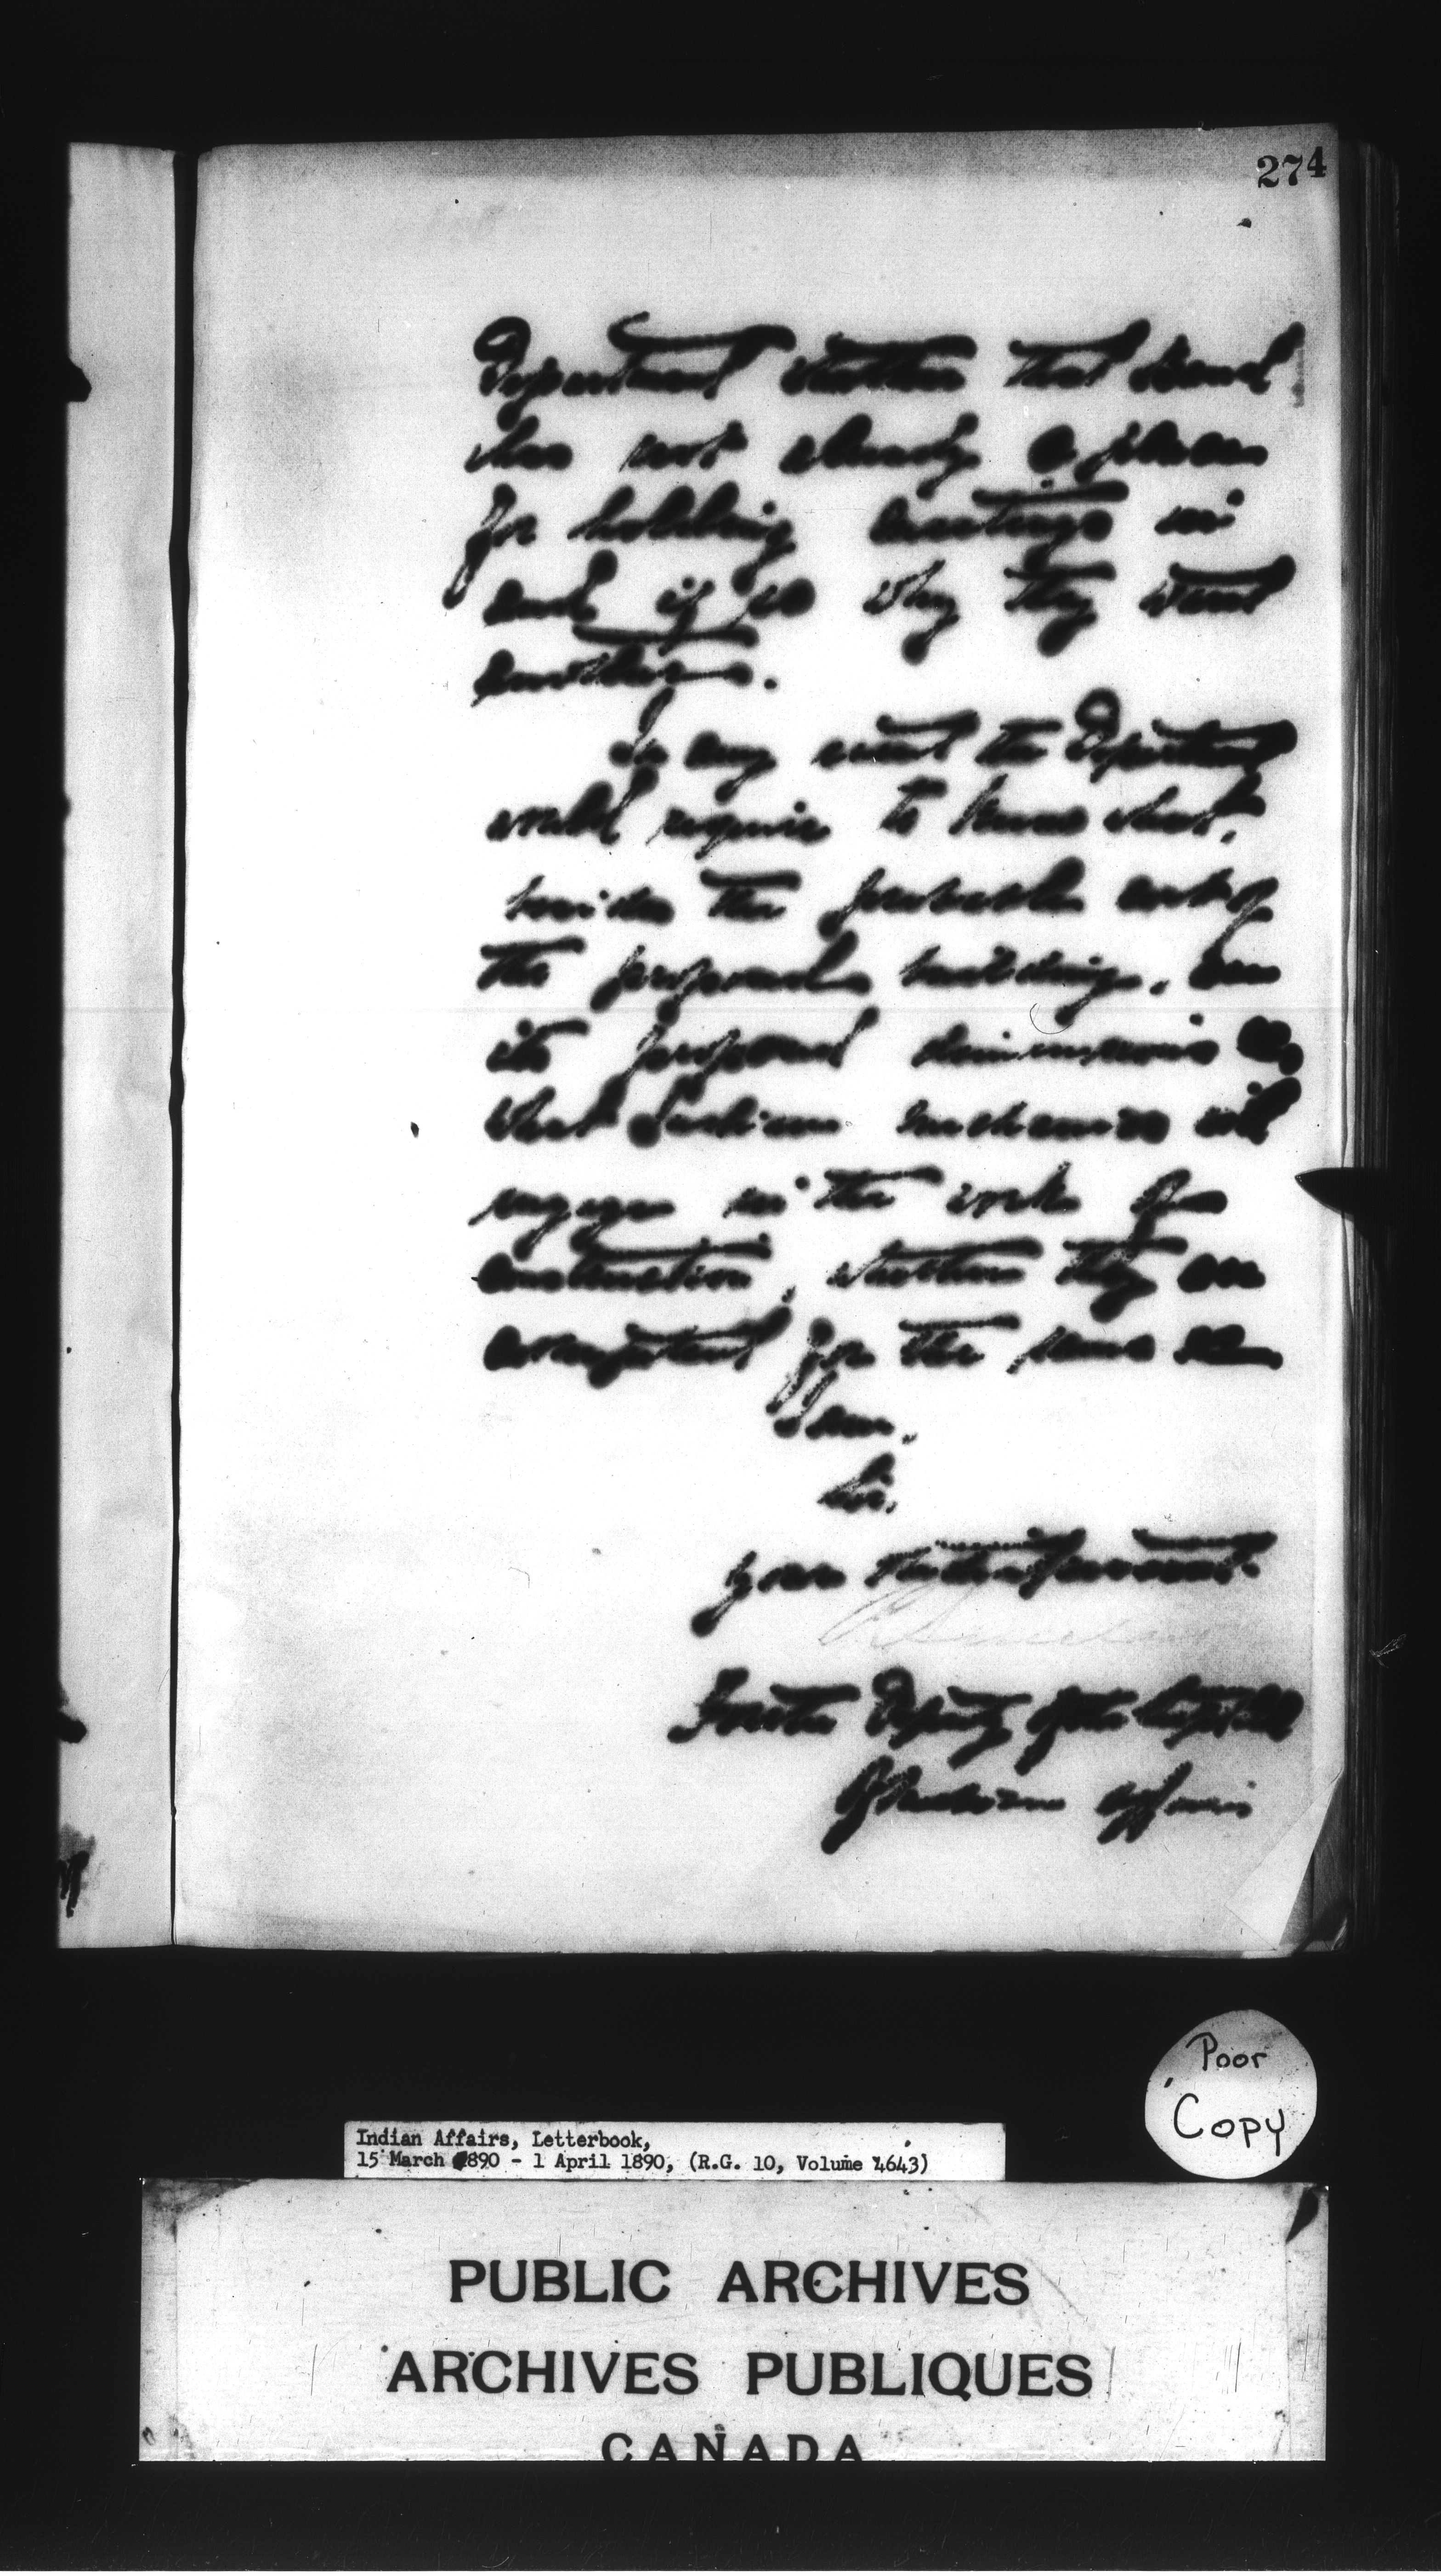 274
Department whether that Band
has not already a place
for holding meetings in
and if so why they want
another.
In any event the Department
would require to know what,
besides the probable cost of
the proposed building, are
its proposed dimensions &
what Indian mechanics will
engage in the work of
construction, whether they are
competent for the same &c
I am,
Sir,
Your obedient servant.
For the Deputy of the Supt. Genl
of Indian Affairs
Poor
Copy
Indian Affairs, Letterbook,
15 March 1890 - 1 April 1890, (R.G. 10, Volume 4643)
PUBLIC ARCHIVES
ARCHIVES PUBLIQUES
CANADA